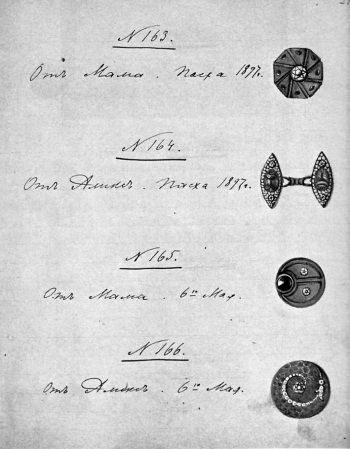 N 163.
Отъ Мама. Пасха 1897г.
N 164.
Отъ Аликсъ. Пасха 1897г.
N 165.
Отъ Мама. 6го Мая.
N 166.
Отъ Аликсъ. 6го Мая.